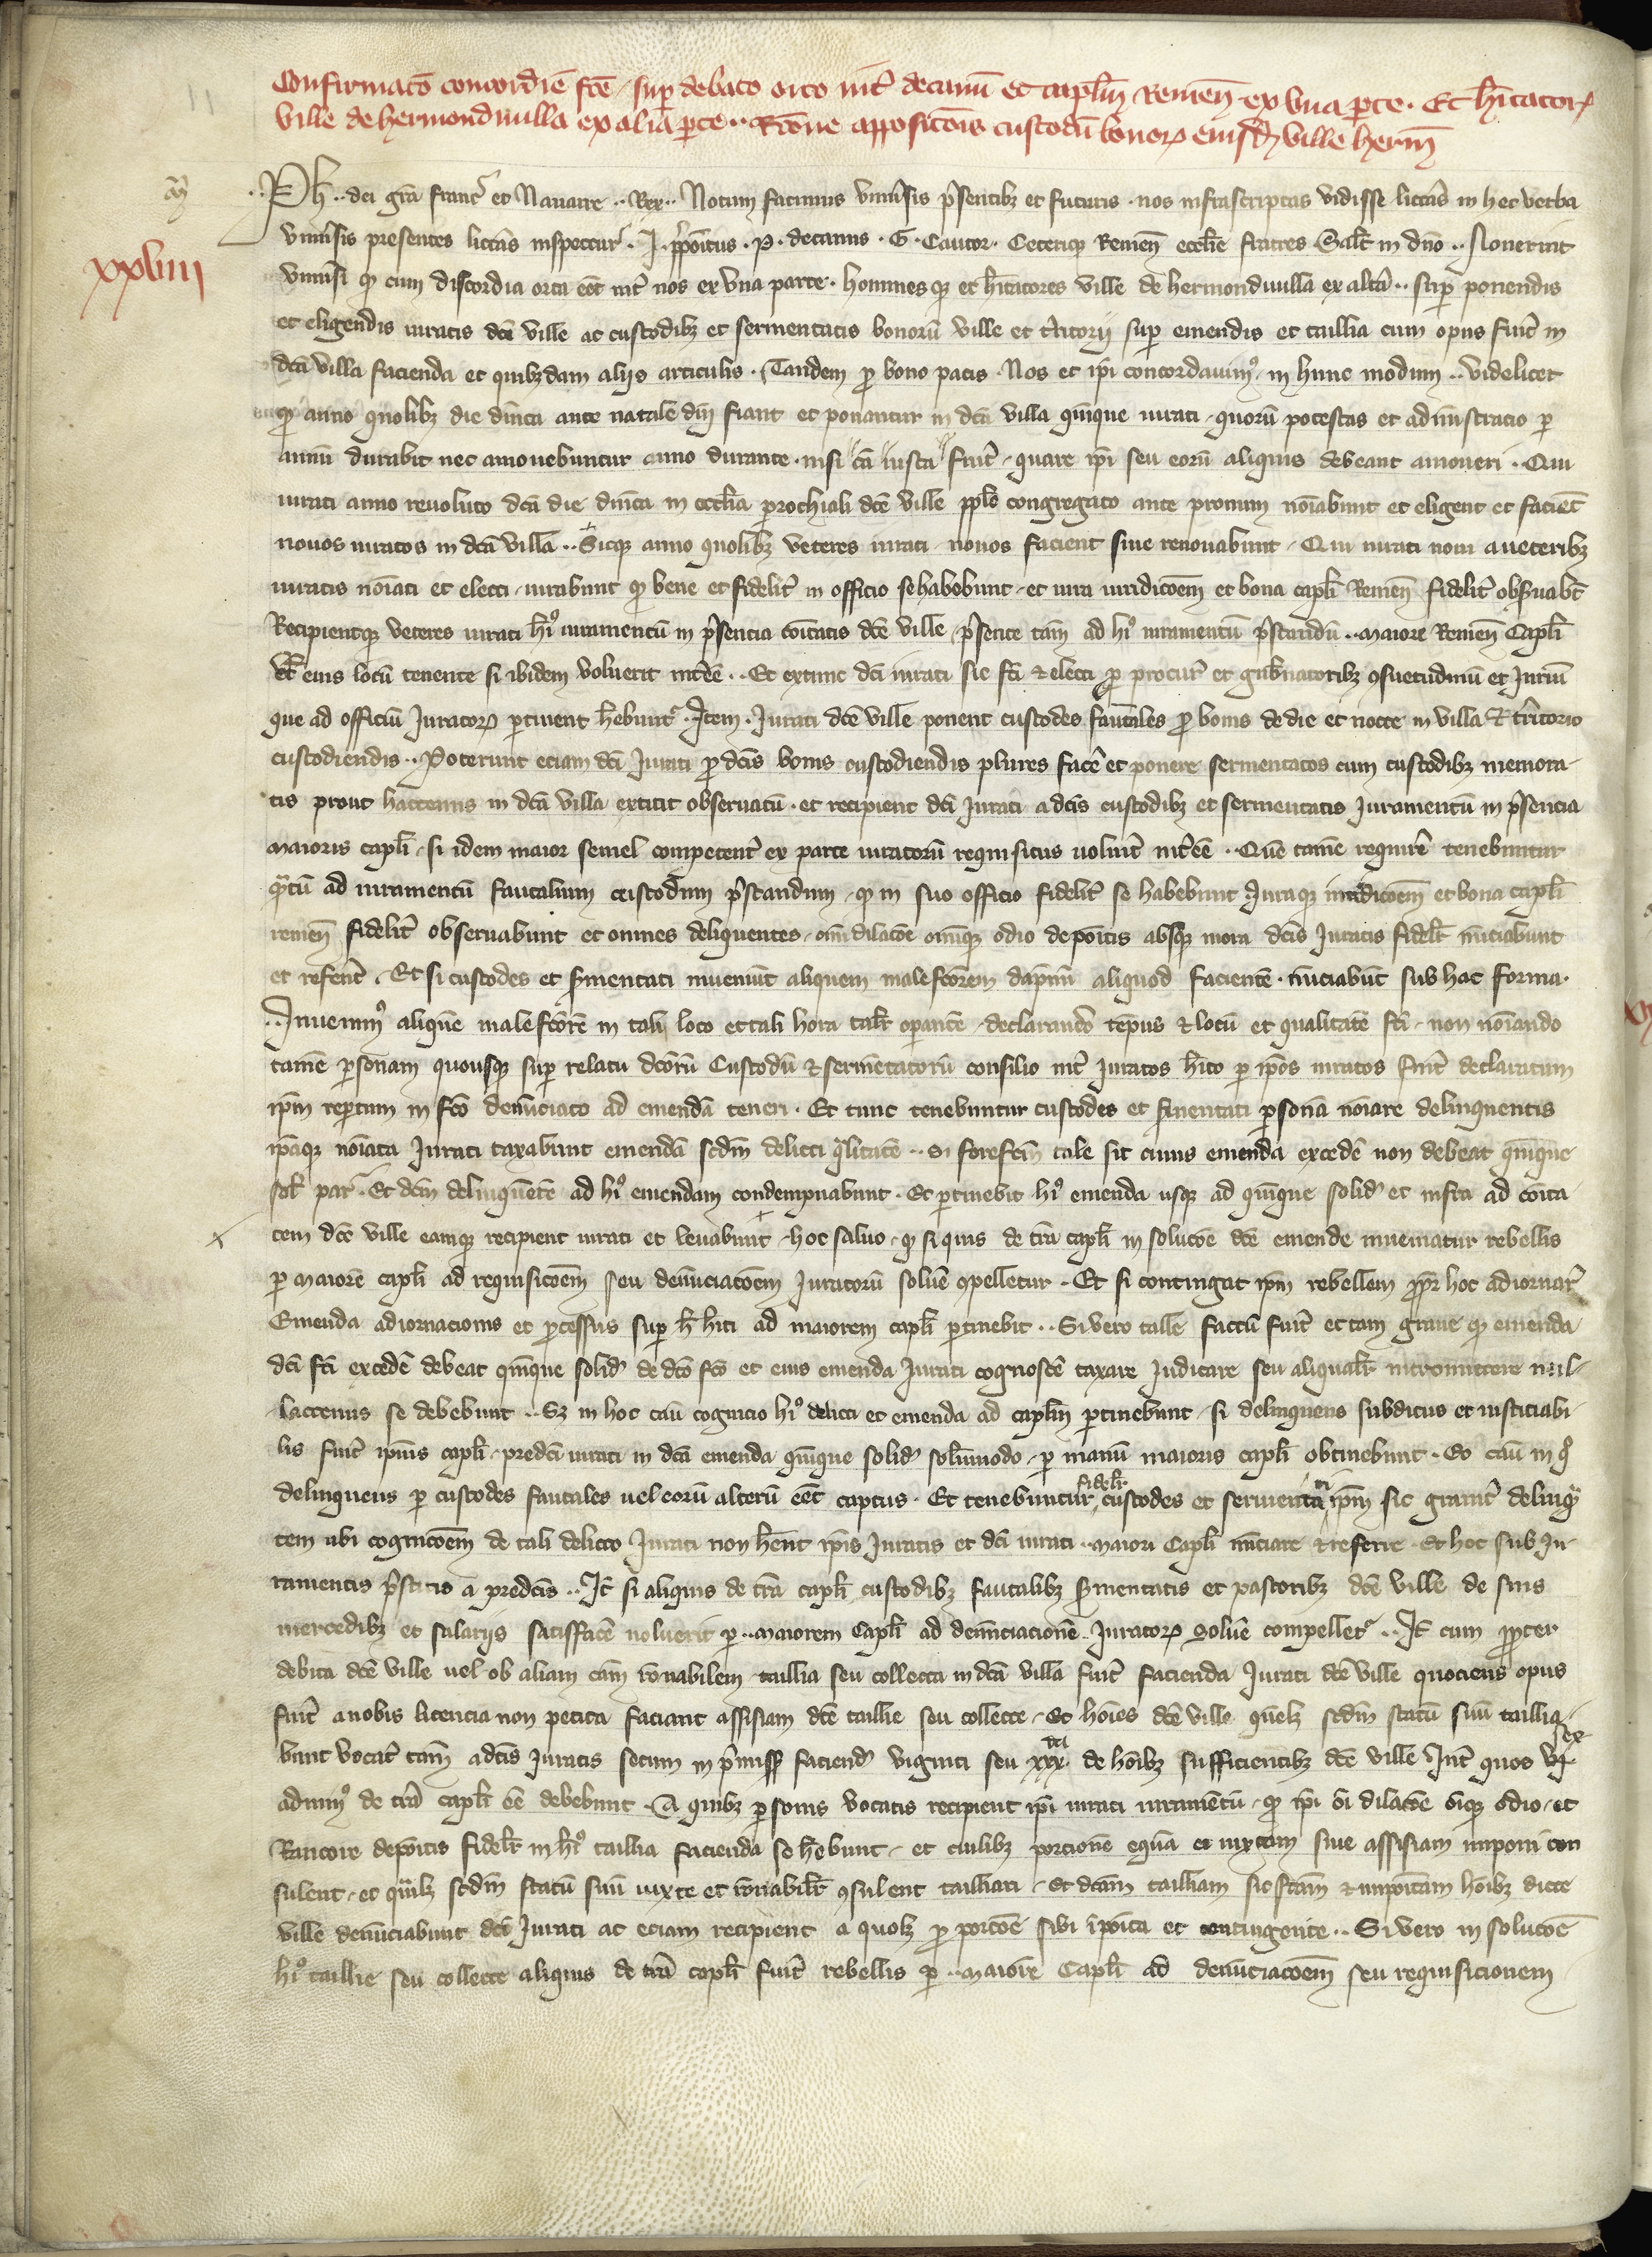 Confirmato concordie fce sup debato orto int decanu et capłm Remen ex una pte. Et hitator
ville de hermondiuilla ex alia pte. Rone apposicois custodu bonor eiusd ville herm
Ph dei gra franc et Nauarre Rex. Notum facimus uniusis psentibz et futuris nos infrascriptas vidisse littas in hec verba
uniusis presentes littas inspectur. J. ppoitus. P. decanus. G. Cantor. Ceterique Remen ecclie fratres Salt in dno. Nouerint
xxviiii
uniusi q cum discordia orta eet int nos ex una parte. hominesq et hitatores ville de hermondiuilla ex alta. sup ponendis
et eligendis iuratis dce ville ac custodibz et sermentatis bonoru ville et tritorij sup emendis et taillia cum opus fuit in
dca villa facienda et quibzdam alijs articulis. Tandem p bono pacis Nos et ipi concordauim in hunc modum. videlicet
q anno quolibz die dnica ante natale dni fiant et ponantur in dca villa quinque iurati quoru potestas et administracio p
annu durabit nec amouebuntur anno durante nisi ca iusta fuit quare ipi seu eoru aliquis debeant amoueri. Qui
iurati anno reuoluto dca die dnica in ecclia parochiali dce ville pplo congregato ante pronum noiabunt et eligent et facient
nouos iuratos in dca villa. Sicq anno quolibz veteres iurati nouos facient siue renouabunt. Qui iurati noui a ueteribz
iuratis noiati et electi iurabunt q bene et fidelit in officio se habebunt et iura iuridicoem et bona capli Remen fidelit obsuabt
Recipientq veteres iurati hi iuramentu in psencia coitatis dce ville psente tam ad hi iuramentu pstandu. maiore Remen Capli
vl eius locu tenente si ibidem voluerit intee. Et extunc dci iurati sic fci et electi p procur et gubnatoribz gsuetudinu et Juriu
que ad officiu Jurator ptinent hebunt. Item. Jurati dce ville ponent custodes fautales p bonis de die et nocte in villa et tritorio
custodiendis. Poterunt eciam dci Jurati p dcis bonis custodiendis plures face et ponere sermentatos cum custodibz memora
tis prout hactenus in dca villa extitit obseruatu. et recipient dci Jurati a dcis custodibz et sermentatis Juramentu in psencia
maioris capli si idem maior semel competent ex parte iuratoru requisitus uoluit intee. Que tame require tenebuntur
qtu ad iuramentu fautalium custodum pstandum q in suo officio fidelit se habebunt Juraq iuridicoem et bona capli
remen fidelit obseruabunt et omnes deliquentes omi dilacoe omiq odio depoitis absq mora dcis Juratis fidelt nuciabunt
et referet. Et si custodes et smentati inuenint aliquem malefcorem dapnu aliquod faciente. nuciabut sub hac forma.
Inuenim alique malefcore in tali loco et tali hora talit opante declarando tepus et locu et qualitate fci non noiando
tame psonam quousq sup relatu dcoru Custodu et sermetatoru consilio int Juratos hito p ipos iuratos fuit declaratum
ipm reptum in fco denuciato ad emenda teneri. Et tunc tenebuntur custodes et smentati psona noiare delinquentis
ipaq noiata Jurati taxabunt emenda scdm delicti qlitate. Si forefcm tale sit cuius emenda excede non debeat quinque
sol par. Et dcm delinquete ad hi emendam condempnabunt. Et ptinebit hi emenda usq ad quinque solid et infra ad coita
tem dce ville eamq recipient iurati et leuabunt hoc saluo q si quis de tra capli in solucoe dce emende inueniatur rebellis
p maiore capli ad requisicoem seu denuciacoem Juratoru solue gpelletur. Et si contingat ipm rebellem ppr hoc adiornar
Emenda adiornacionis et pcessus sup h hiti ad maiorem capli ptinebit. Si vero talle factu fuit et tam graue q emenda
dci fci excede debeat quinque solid de dco fco et eius emenda Jurati cognosce taxare Judicare seu aliqualt intromittere nul
lactenus se debebunt. Sz in hoc cau cognicio hi delicti et emenda ad caplm ptinebunt si delinquens subditus et iusticiabi
lis fuit ipius capli predci iurati in dca emenda quinque solid solumodo p manu maioris capli obtinebunt. Eo cau in q
delinquens p custodes fautales uel eoru alteru eet captus. Et tenebuntur fidelt custodes et sermentati ipm sic grauit delinq
tem ubi cognicoem de tali delicto Jurati non hent ipis Juratis et dci iurati maiori Capli nuciare et referre. Et hoc sub Ju
ramentis pstitis a predcis. It si aliquis de tra capli custodibz fautalibz smentatis et pastoribz dce ville de suis
mercedibz et salarijs satisface noluerit p maiorem Capli ad denunciacione Jurator solue compellet. It cum ppter
debita dce ville uel ob aliam cam ronabilem taillia seu collecta in dca villa fuit facienda Jurati dce ville quociens opus
fuit a nobis licencia non petita faciant assisiam dce taillie seu collecte. Et hoies dce ville quelz scdm statu suu taillia
bunt vocat tam a dcis Juratis secum in pmiss faciend viginti seu xxx de hoibz sufficientibz dce ville Int quos vi sex
adminus de tra capli ee debebunt. A quibz psonis vocatis recipient ipi iurati iuramentu q ipi oi dilacoe oiq odio et
Rancore depoitis fidelt in hi taillia facienda se hebunt et cuilibz porcione equa et iuxtam siue assisiam imponi con
sulent et quilz scdm statu suu iuxte et ronabilit gsulent tailliari. Et dcam tailliam sic fcam et impoitam hoibz dicte
ville denuciabunt dci Jurati ac eciam recipient a quolz p porcoe sibi ipoita et contingente. Si vero in solucoe
hi taillie seu collecte aliquis de tra capli fuit rebellis p maiore Capli ad denunciacoem seu requisicionem